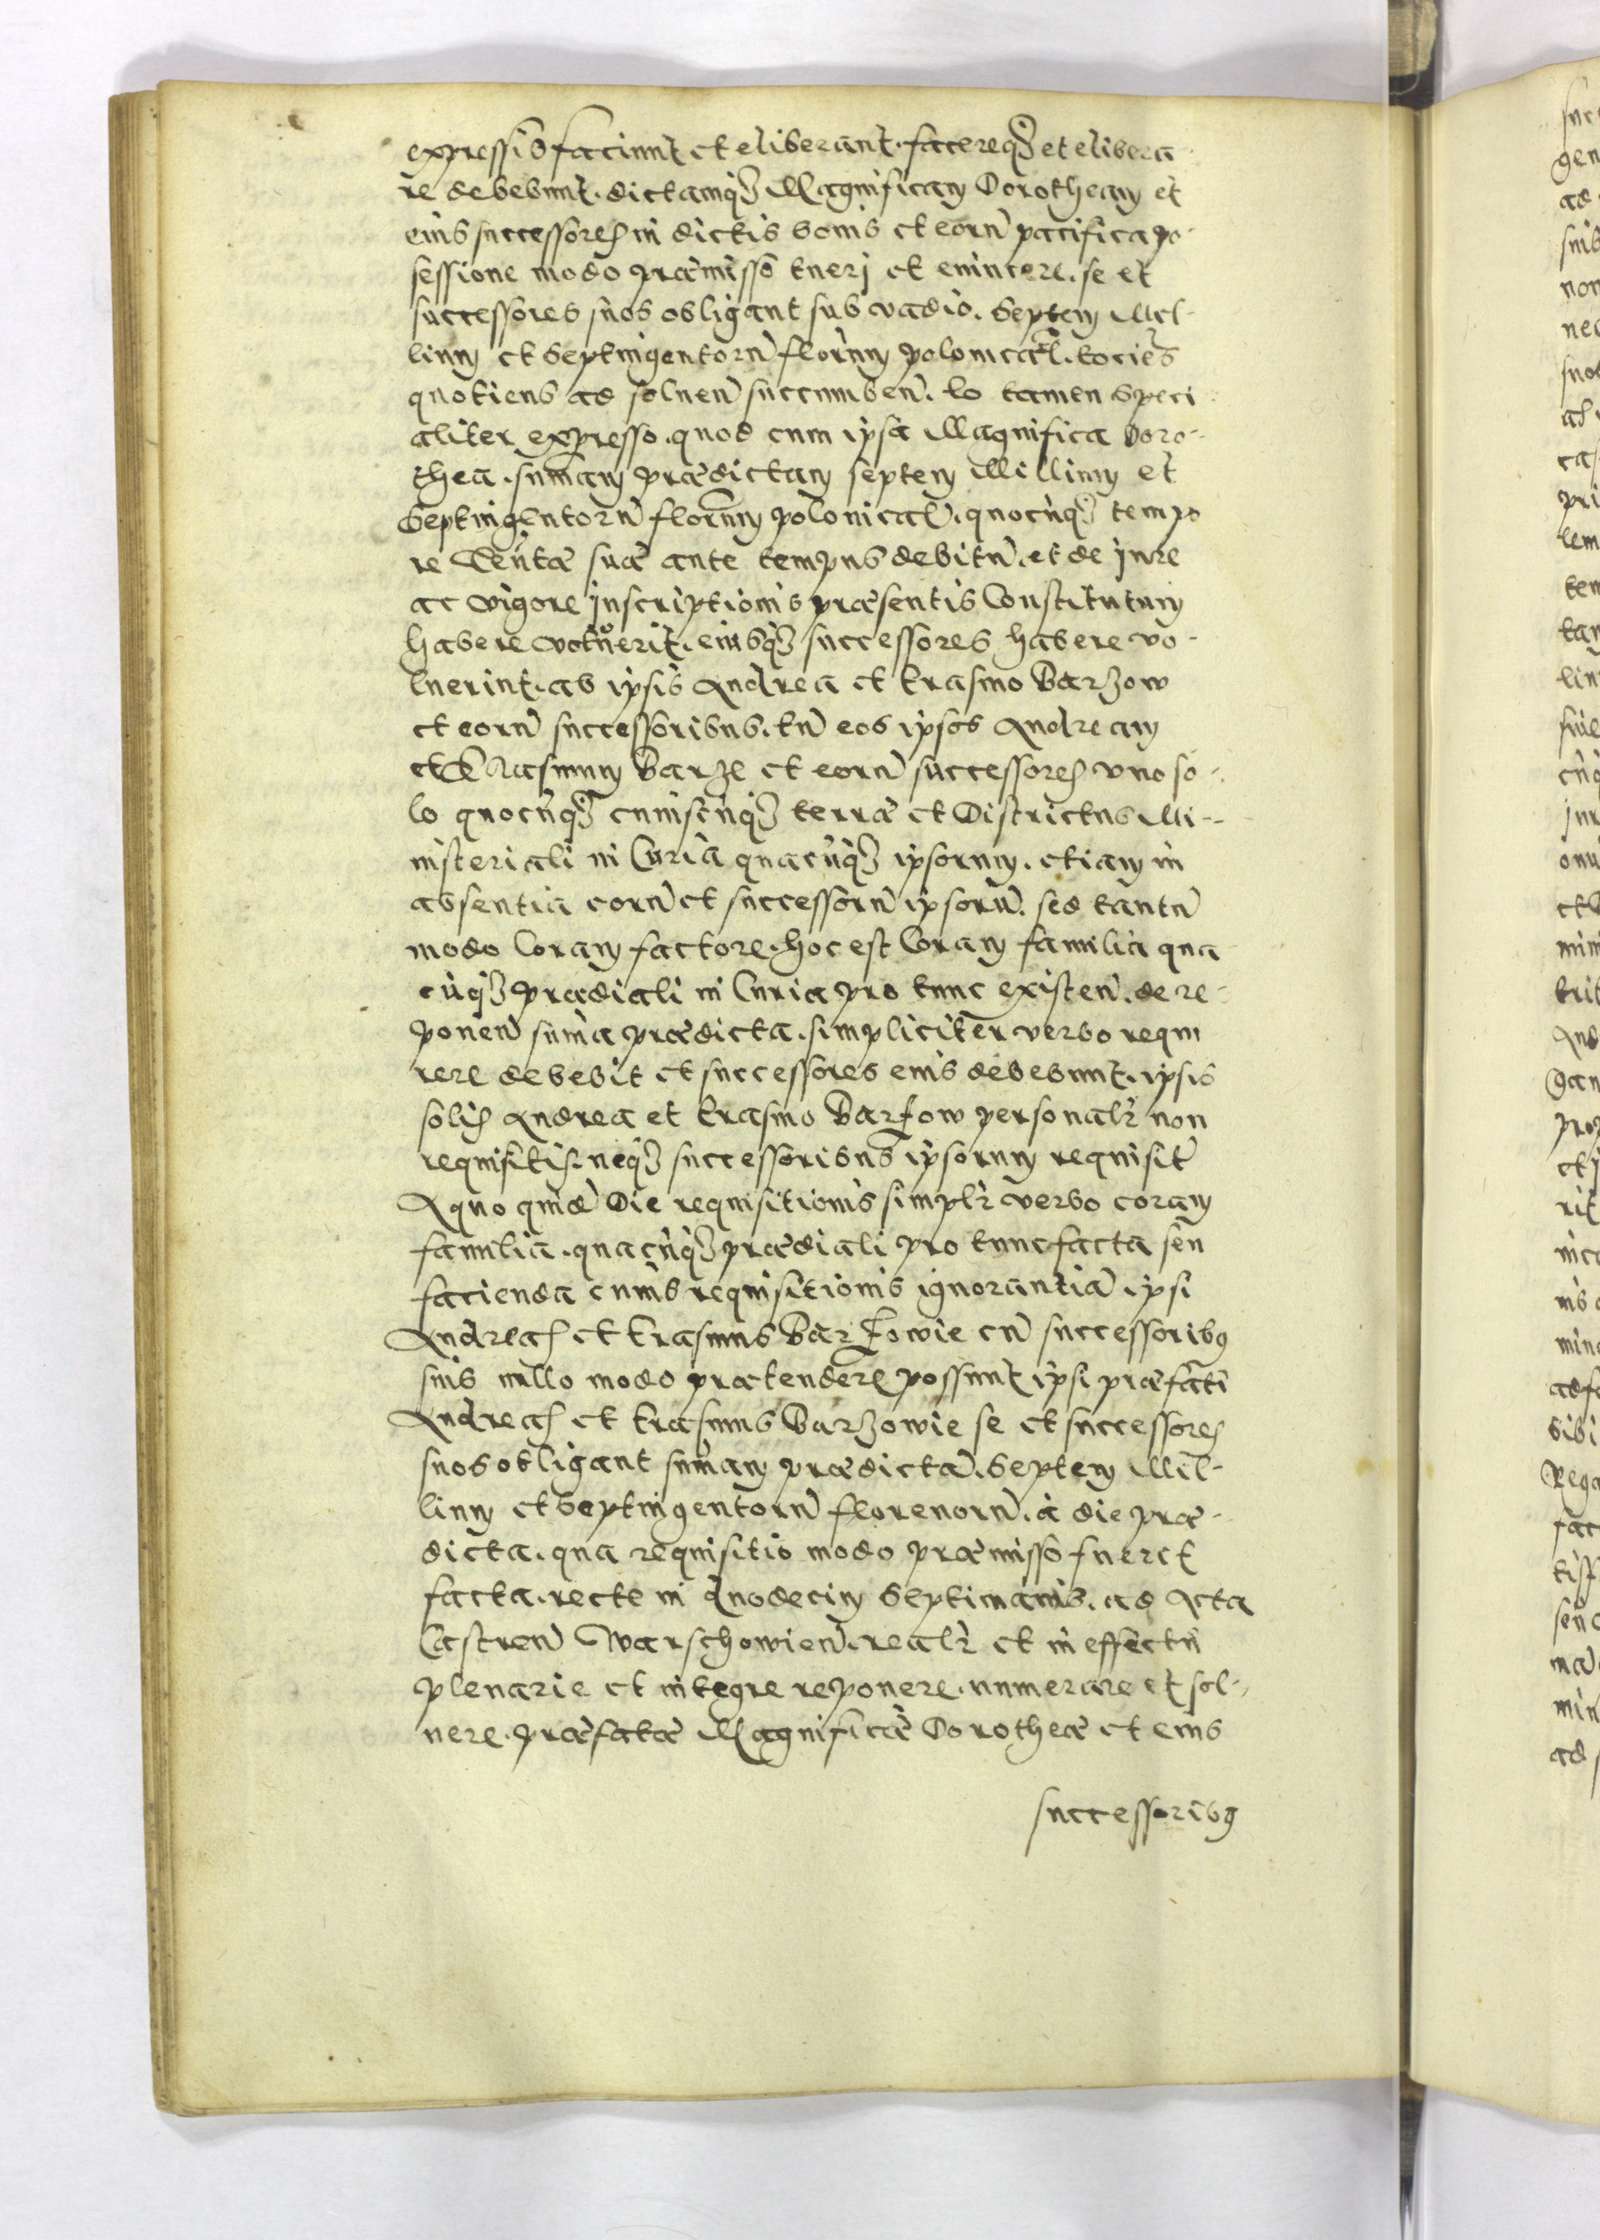 expressis faciunt et eliberant. facereq3 et elibera
re debebunt. dictamq3 Magnificam Dorotheam et
eius successores in dictis bonis et eorū pacifica po-
sessione modo præmisso tueri et evincere. se et
successores suos obligant sub vadio. Septem Mil-
lium et Septingentorū florenum polonical̄. tocies
quotiens ad soluen̄ succumben̄. Eo tamen speci-
aliter expresso. quod cum ipsa Magnifica Doro-
thea. sum̄am prædictam septem Millium et
Septingentorū florenum polonical̄. quocūq3 tempo
re Tenutæ suæ ante tempus debitū. et de jure
ac vigore jnscriptionis præsentis Constitutum
habere voluerit. eiusq3 successores habere vo-
luerint. ab ipsis Andrea et Erasmo Barzow
et eorū successoribus. tū eos ipsos Andream
et Erasmum Barze et eorū successores vno so-
lo quocūq3 cuiuscūq3 terræ et Districtus Mi-
nisteriali in Curia quacūq3 ipsorum. etiam in
absentia eorū et successorū ipsorū. sed tantū
modo Coram factore. hoc est Coram familia qua
cūq3 prædiali in Curia pro tunc existen̄. de re-
ponen̄ sum̄a prædicta. simpliciter verbo requi
rere debebit et successores eius debebunt. ipsis
solis Andrea et Erasmo Barzow personalr̄ non
requisitis. neq3 successoribus ipsorum requisit̄
A quo quidē Die requisitionis simplr̄ verbo coram
familia. quacūq3 prædiali pro tunc facta seu
facienda cuius requisitionis ignorantiā ipsi
Andreas et Erasmus Barzowie cū successorib9
suis nullo modo prætendere possunt ipsi præfati
Andreas et Erasmus Barzowie se et successores
suos obligant sum̄am prædictā. Septem Mil-
lium et Septingentorū florenorū. à die præ-
dicta. qua requisitio modo præmisso fueret
facta. recte in duodecim Septimanis. ad Acta
Castren̄ Warschowien̄. realr̄ et in effectū
plenarie et integre reponere. numerare et sol-
uere. præfatæ Magnificæ Dorotheæ et eius
successorib9